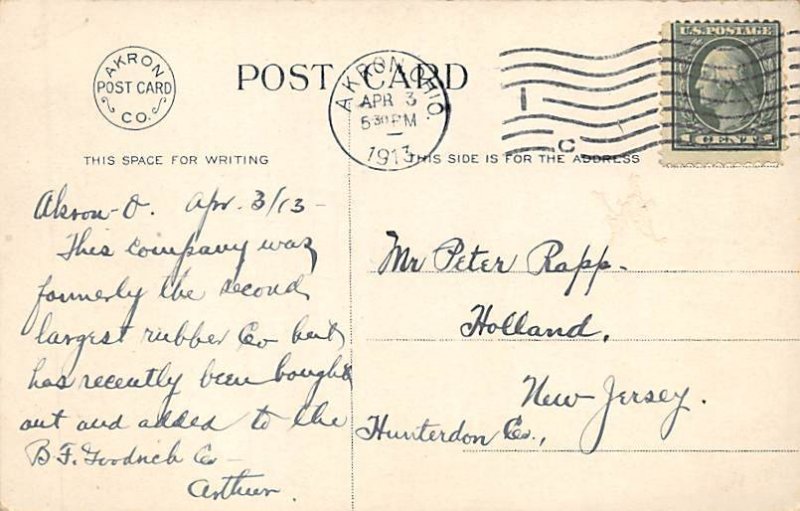 AKRON
POST CARD
CO.
POST CARD
AKRON, OHIO.
APR 3
5 30 PM
1913
1
C
U.S. POSTAGE
1 CENT 1
THIS SPACE FOR WRITING
THIS SIDE IS FOR THE ADDRESS
Akron-O. Apr. 3/13-
This company was
formerly the second
largest rubber Co but
has recently been bought
out and added to the
B.F. Goodrich Co-
Arthur.
Mr Peter Rapp-
Holland,
New Jersey.
Hunterdon Co.,